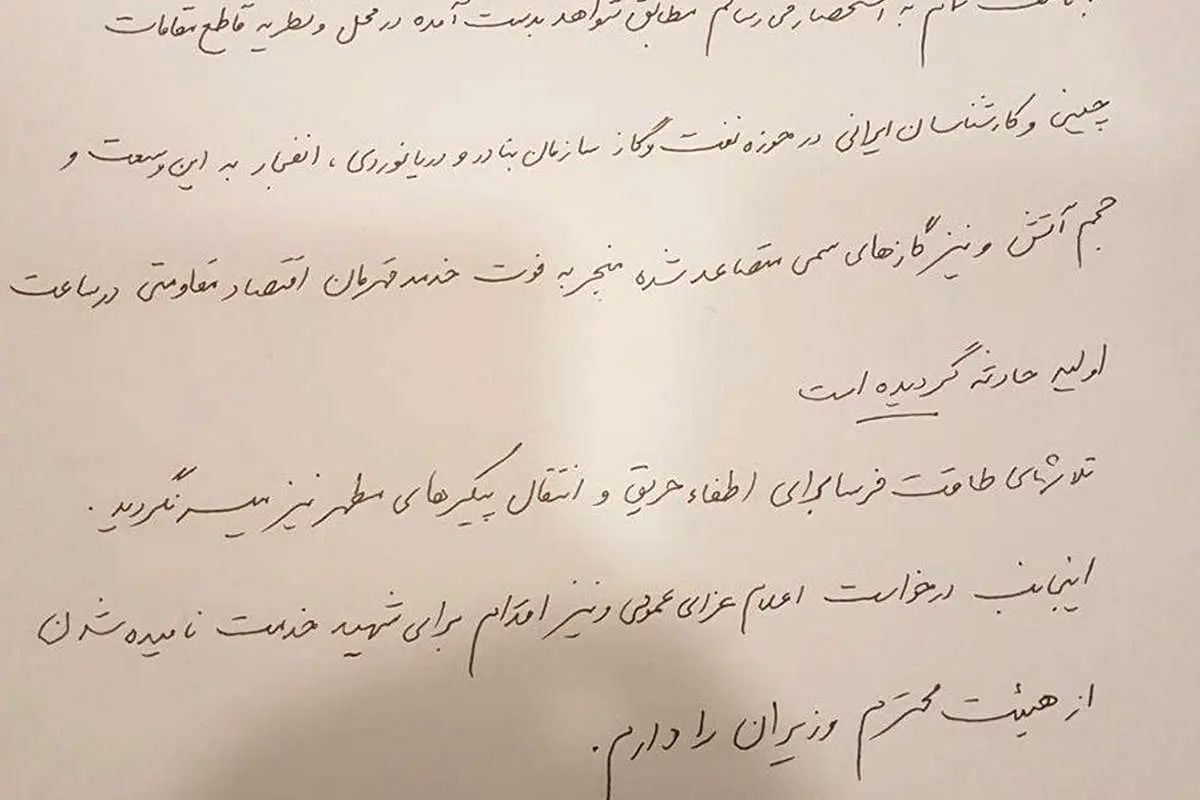 با نهایت تاثر به استحضار می رسانم مطابق شواهد بدست آمده در محل و نظریه قاطع مقامات
چینی و کارشناسان ایرانی در حوزه نفت و گاز سازمان بنادر و دریانوردی ، انفجار به این وسعت و
حجم آتش و نیز گازهای سمی متصاعد شده منجر به فوت خدمه قهرمان اقتصاد مقاومتی در ساعت
اولیه حادثه گردیده است
تلاشهای طاقت فرسا برای اطفاء حریق و انتقال پیکرهای مطهر نیز میسر نگردید .
اینجانب درخواست اعلام عزای عمومی و نیز اقدام برای شهید خدمت نامیده شدن
از هیئت محترم وزیران را دارم .